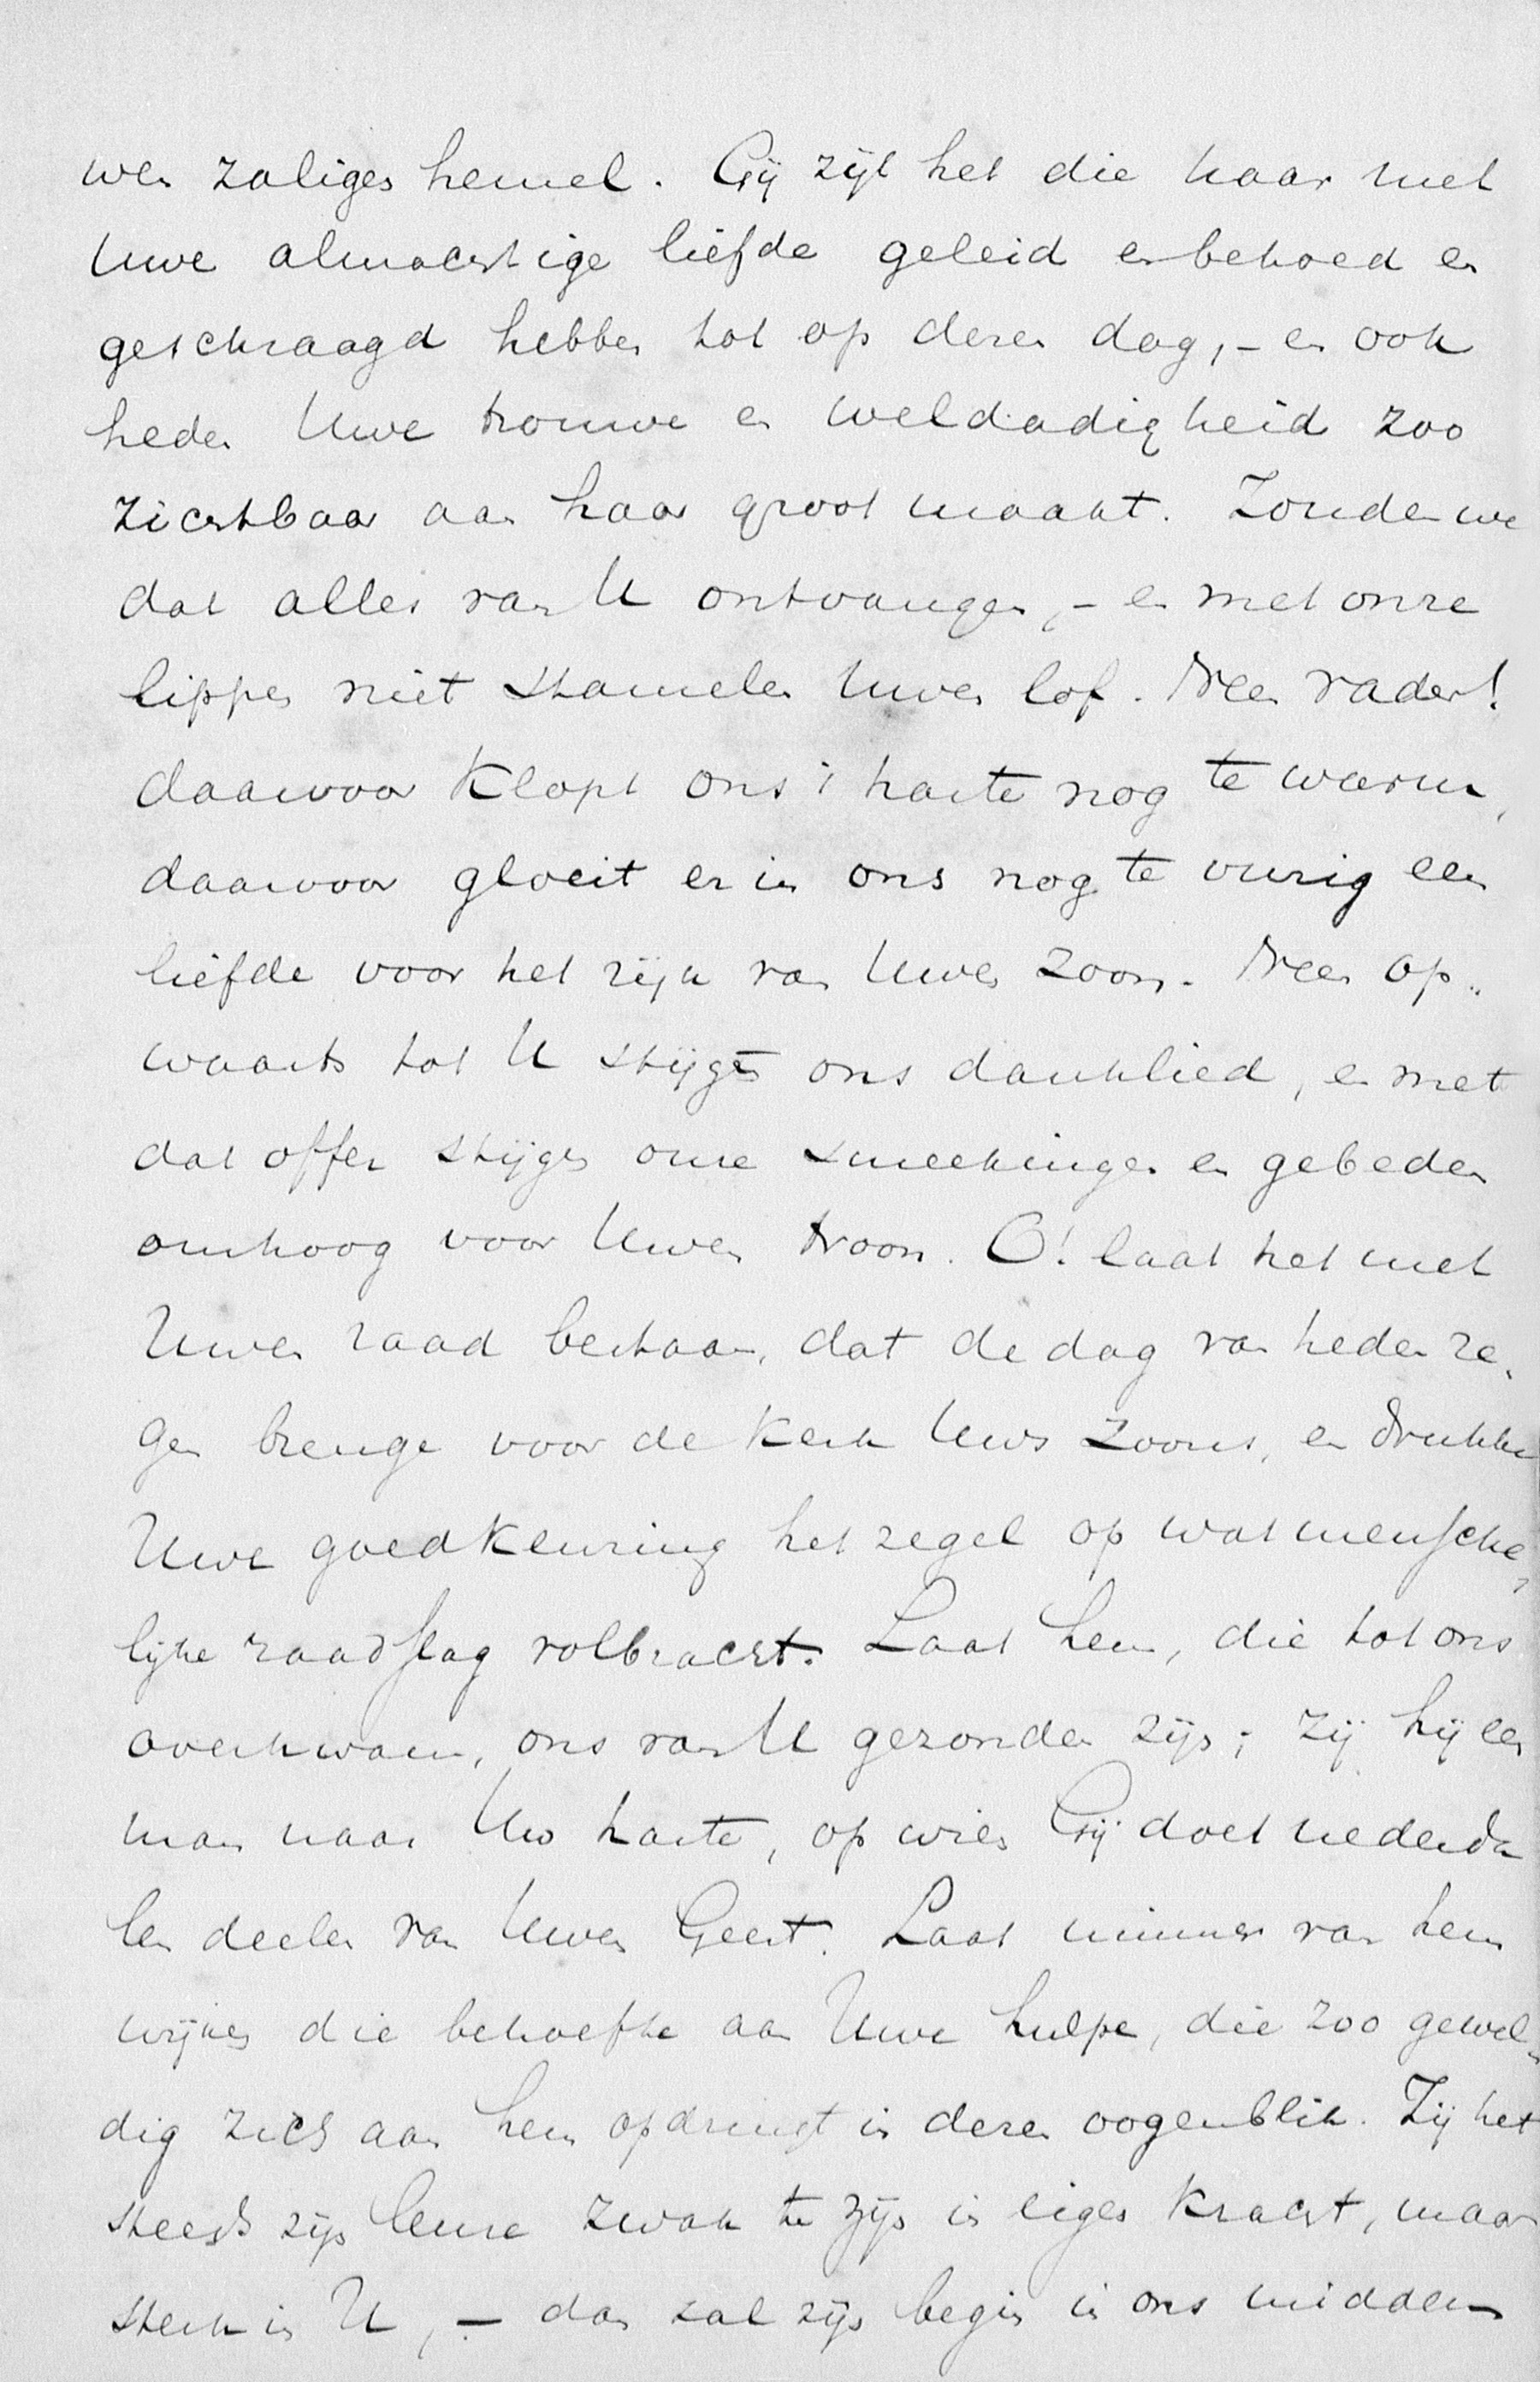 wen zaligen hemel. Gij zijt het die haar met
Uwe almachtige liefde geleid en behoed en
geschraagd hebben tot op dezen dag, – en ook
heden Uwe trouwe en weldadigheid zoo
zichtbaar aan haar groot maakt. Zouden we
dat alles van U ontvangen, – en met onze
lippen niet stamelen Uwen lof. Neen Vader!
daarvoor klopt ons 't harte nog te warm,
daarvoor gloeit er in ons nog te vurig een
liefde voor het rijk van Uwen Zoon. Neen op-
waarts tot U stijgt ons danklied, en met
dat offer stijgen onze smeekingen en gebeden
omhoog voor Uwen troon. O! laat het met
Uwen raad bestaan, dat de dag van heden ze-
gen brenge voor de Kerk Uws Zoons, en drukke
Uwe goedkeuring het zegel op wat mensche-
lijke raadslag volbracht. Laat hem, die tot ons
overkwam, ons van U gezonden zijn; zij hij een
man naar Uw harte, op wien Gij doet nederda
len deelen van Uwen Geest. Laat nimmer van hem
wijken die behoefte aan Uwe hulpe, die zoo gewel-
dig zich aan hem opdringt in dezen oogenblik. Zij het
steeds zijn leuze zwak te zijn in eigen kracht, maar
sterk in U, – dan zal zijn begin in ons midden